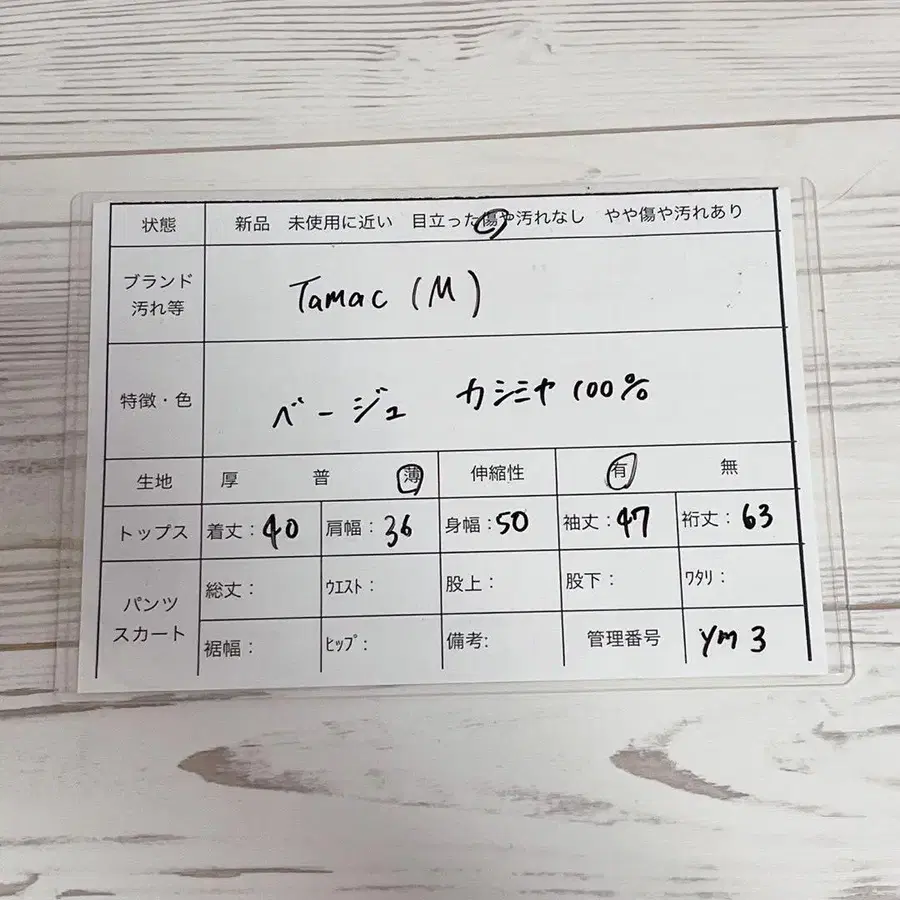 状態 新品 未使用に近い 目立った傷や汚れなし やや傷や汚れあり
ブランド
汚れ等
Tamac (M)
特徴・色 ベージュ カシミヤ 100%
生地 厚 普 薄 伸縮性 有 無
トップス 着丈：40 肩幅：36 身幅：50 袖丈：47 裄丈：63
パンツ
スカート
総丈： ｳｴｽﾄ： 股上： 股下： ﾜﾀﾘ：
裾幅： ﾋｯﾌﾟ： 備考: 管理番号 YM 3